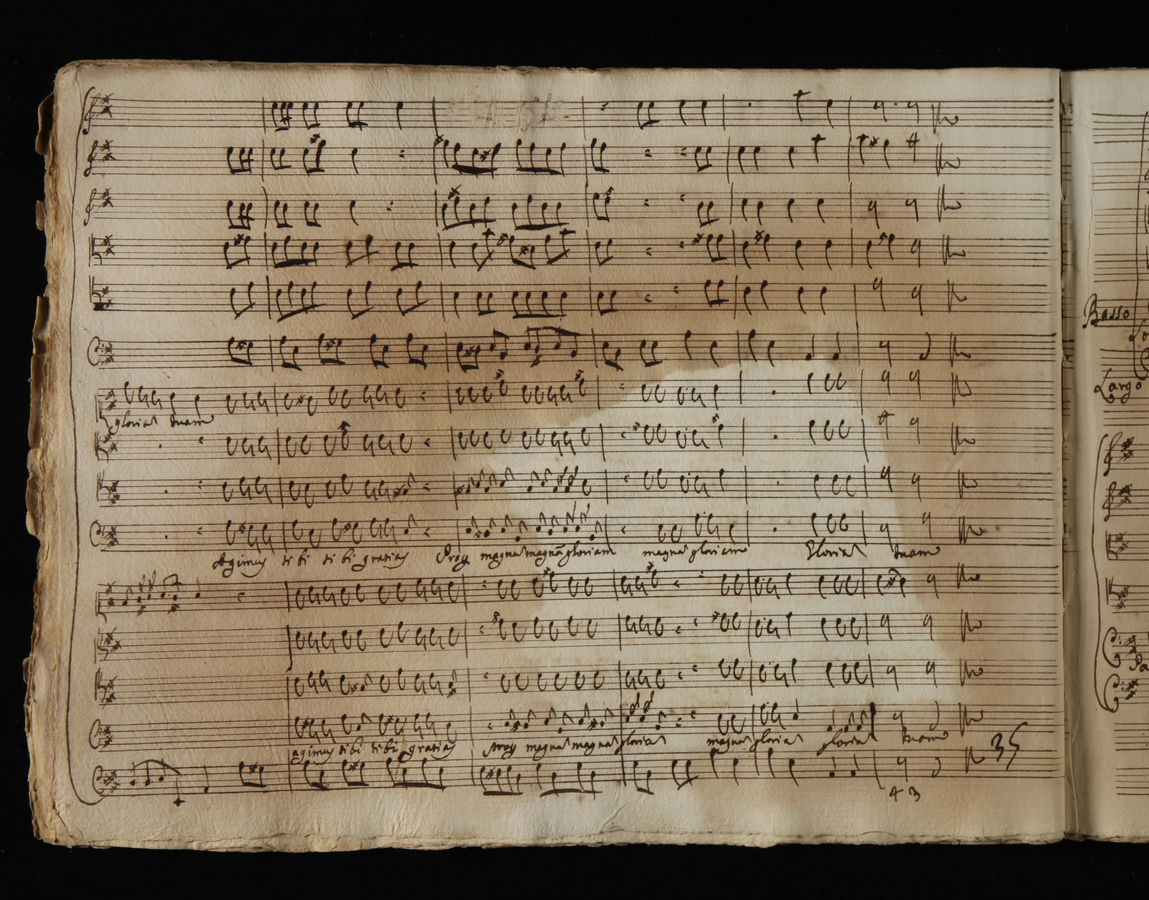 gloria tuam
Agimus tibi tibi gratias Prop magna magna gloriam magna gloriam Gloria tuam
agimus tibi tibi gratias Prop magna magna gloria magna gloria gloria tuam
35
4 3
Basso
Largo